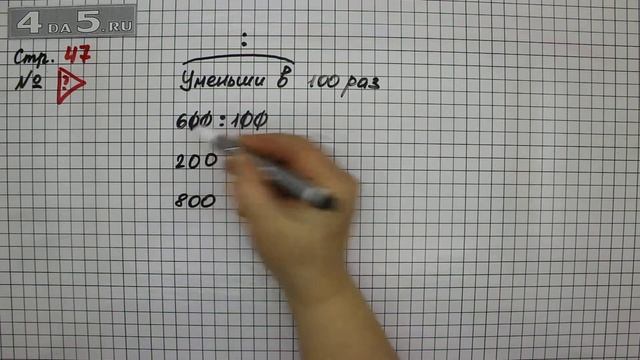 4 DA 5.RU
Стр. 47
№ ?
:
Уменьши в 100 раз
600 : 100
200
800